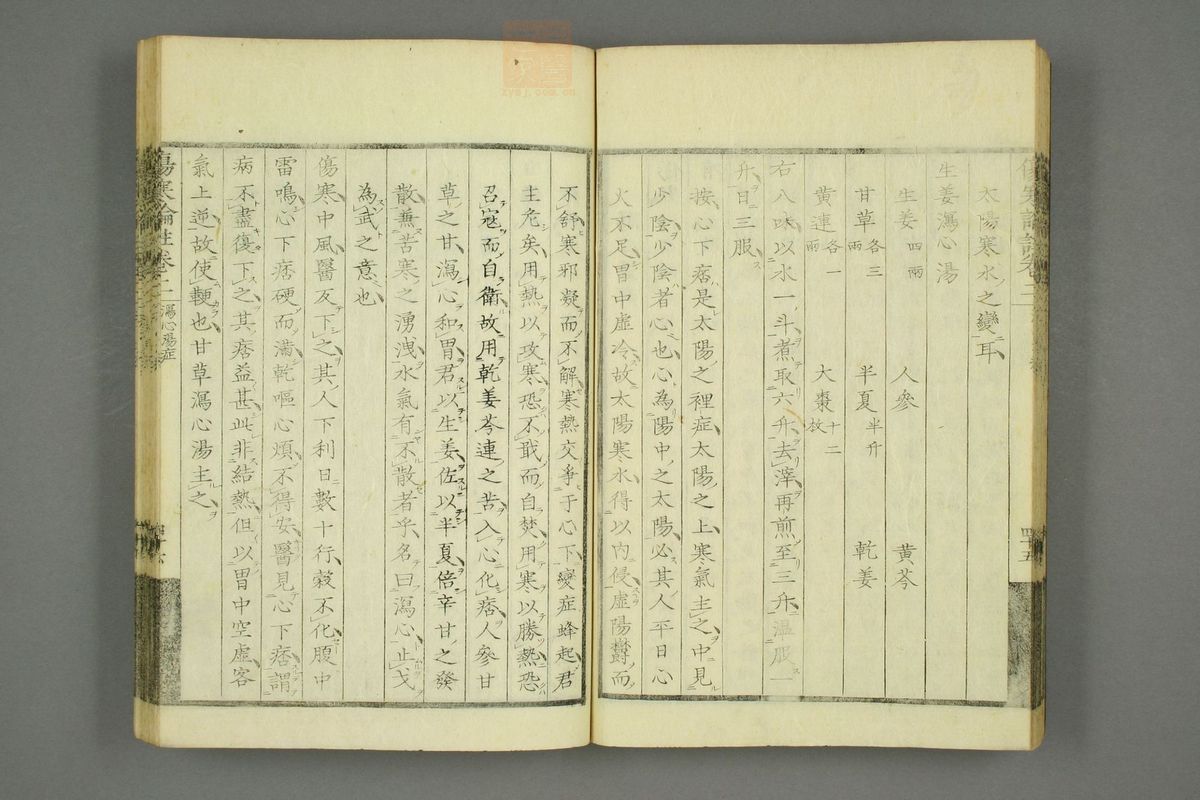 太陽寒水之變耳
生姜瀉心湯
生姜四兩 人參 黃芩
甘草各三兩 半夏半升 乾姜
黃連各一兩 大棗十二枚
右八味以水一斗煮取六升去滓再煎至三升溫服一
升日三服
按心下痞是太陽之裡症太陽之上寒氣主之中見
少陰少陰者心也心為陽中之太陽必其人平日心
火不足胃中虛冷故太陽寒水得以內侵虛陽欝而
不舒寒邪凝而不解寒熱交爭于心下變症蜂起君
主危矣用熱以攻寒恐不戢而自焚用寒以勝熱恐
召寇而自衛故用乾姜芩連之苦入心化痞人參甘
草之甘瀉心和胃君以生姜佐以半夏倍辛甘之發
散兼苦寒之湧洩水氣有不散者乎名曰瀉心止戈
為武之意也
傷寒中風醫反下之其人下利日數十行穀不化腹中
雷鳴心下痞硬而滿乾嘔心煩不得安醫見心下痞謂
病不盡復下之其痞益甚此非結熱但以胃中空虛客
氣上逆故使鞕也甘草瀉心湯主之
傷寒論註卷二 瀉心湯症
四十五
zysj.com.cn